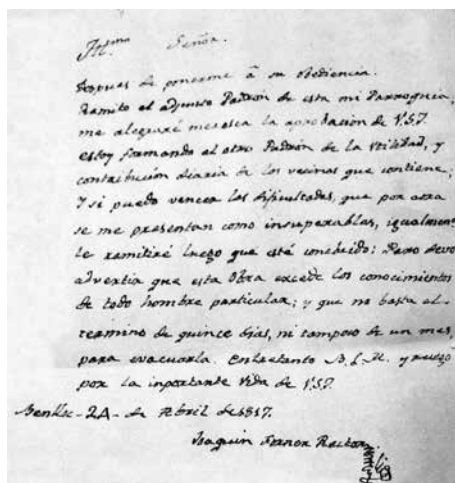 Ill.mo Señor.
Despues de ponerme â su Obediencia.
Remito el adjunto Padrón de esta mi Parroquia,
me alegraré meresca la aprobacion de V.S.I.
estoy formando el otro Padron de la Utilidad, y
contribución diaria de los vecinos que contiene;
Y si puedo vencer las dificultades, que por aora
se me presentan como insuperables, igualmente
le remitiré luego que esté concluido: Pero devo
advertir que esta Obra excede los conocimientos
de todo hombre particular; y que no basta el
termino de quince dias, ni tampoco de un mes,
para evacuarla. Entretanto B.L.M. y ruego
por la inportante vida de V.S.I.
24 de Abril de 1817.
Joaquin Ferrer Rector